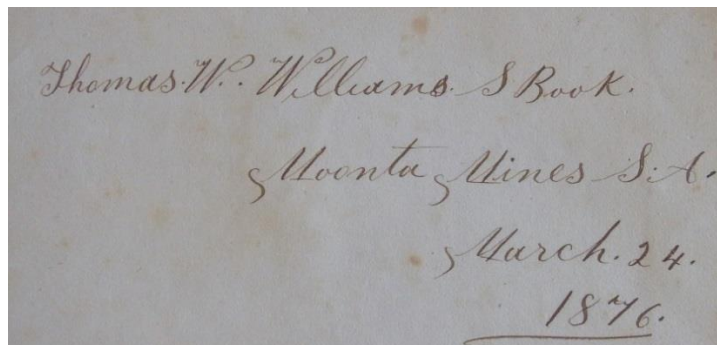 Thomas. W. Williams. S Book.
Moonta Mines S. A.
March. 24.
1876.